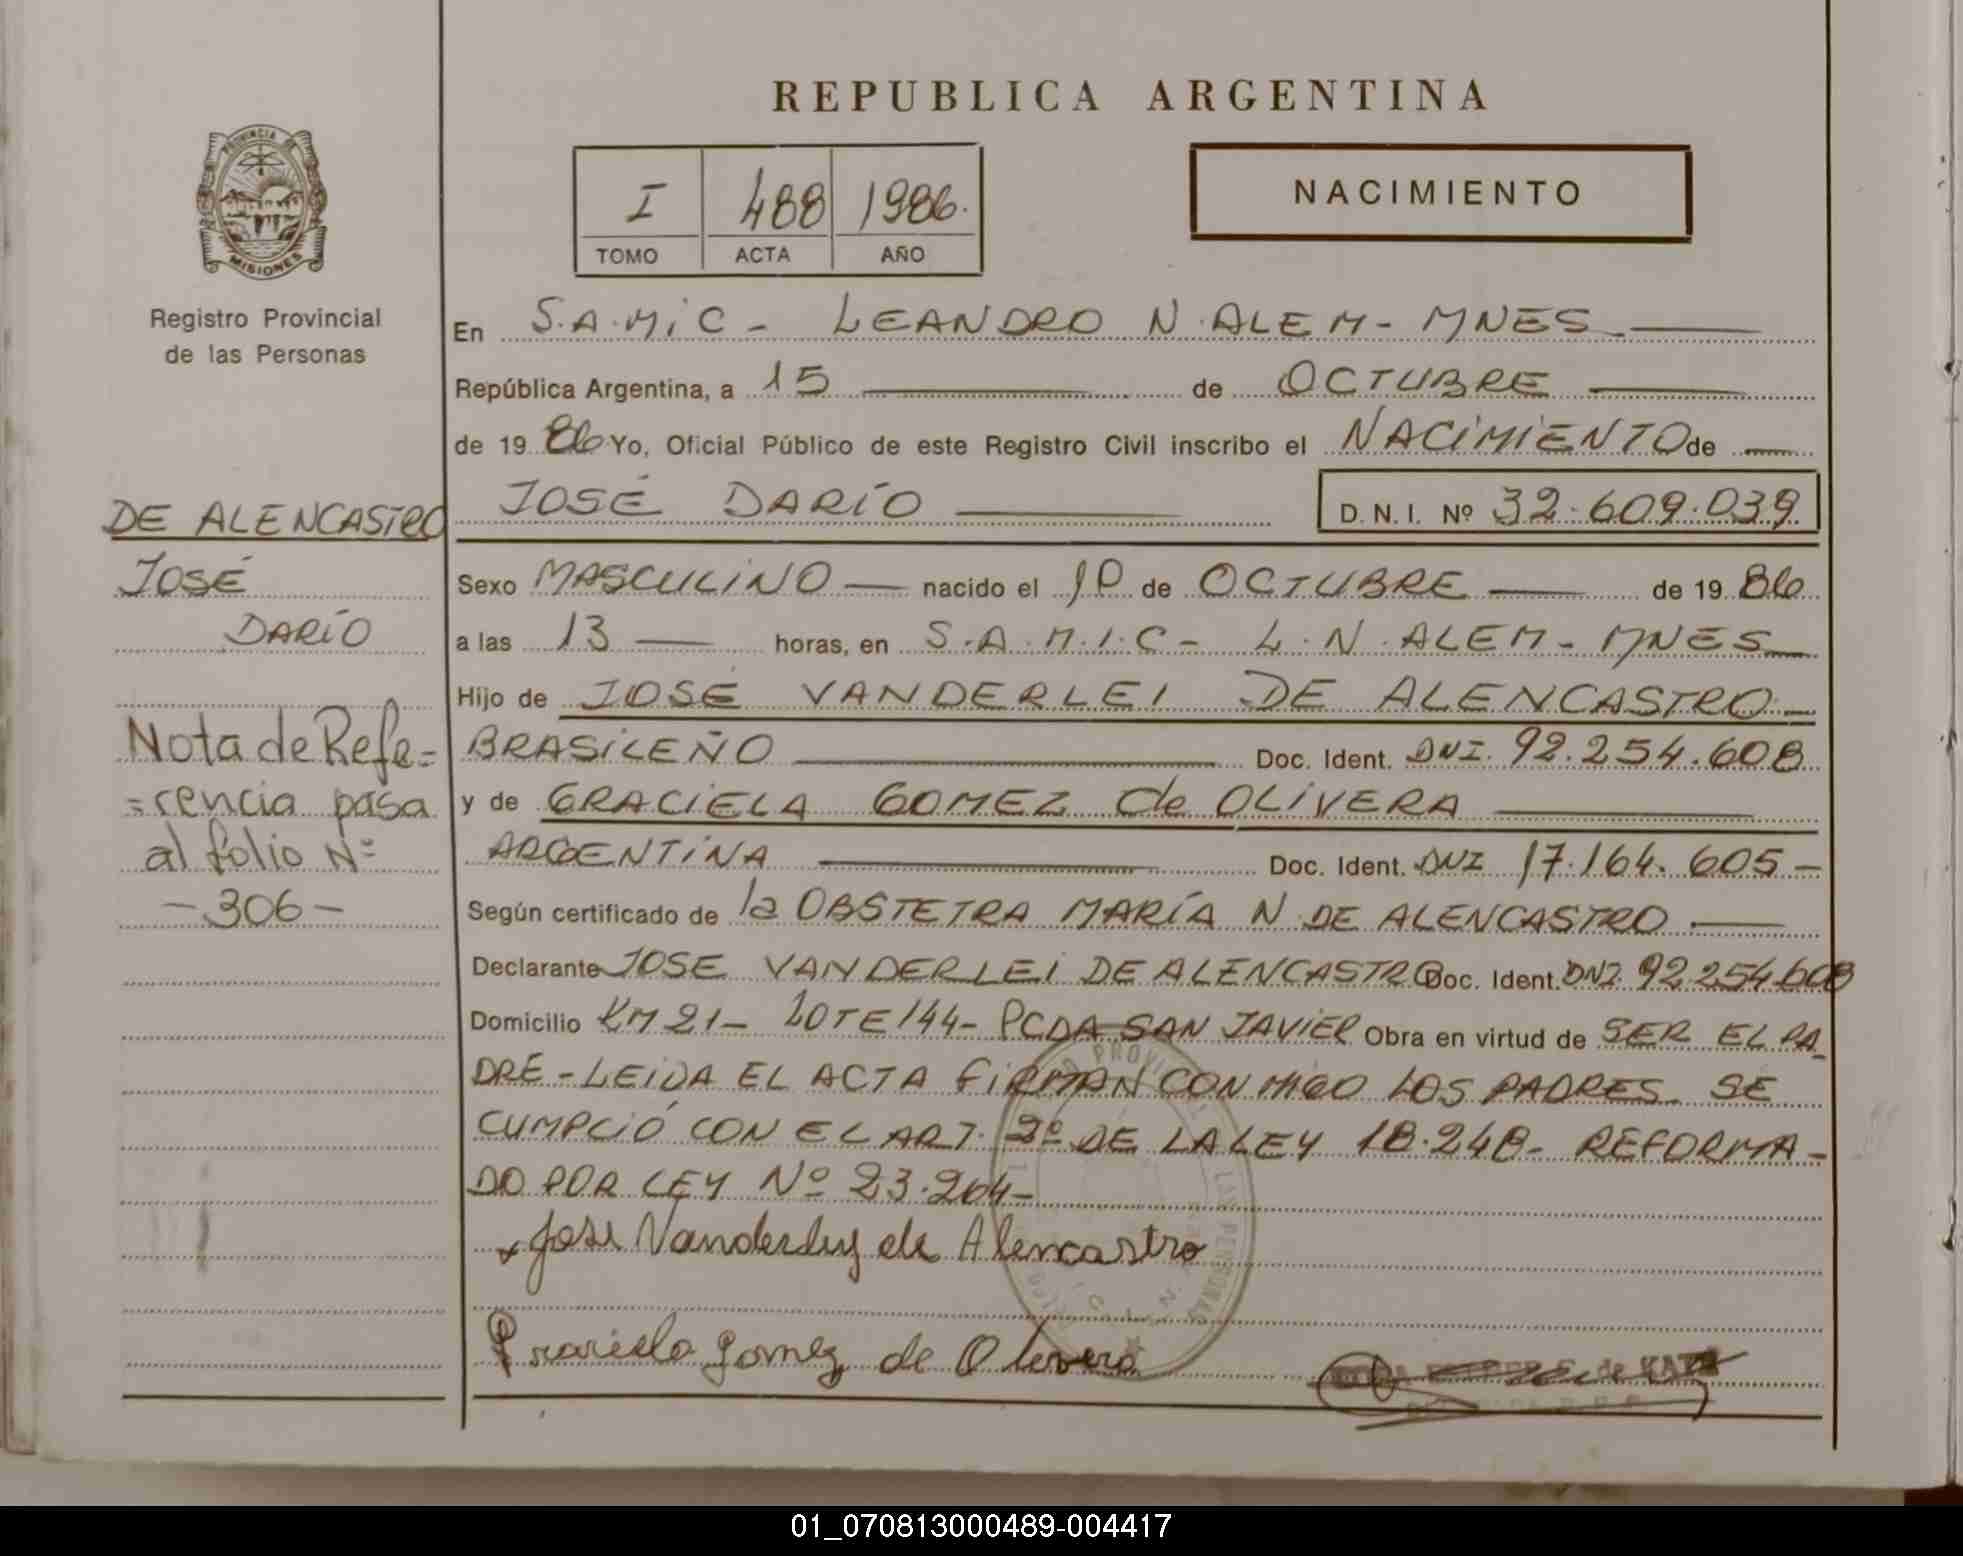 REPUBLICA ARGENTINA
PROVINCIA DE
MISIONES
Registro Provincial
de las Personas
I 488 1986.
TOMO ACTA AÑO
NACIMIENTO
En S.A.MiC - LEANDRO N. ALEM - MNES
República Argentina, a 15 de OCTUBRE
de 19 86 Yo, Oficial Público de este Registro Civil inscribo el NACIMIENTO de
JOSÉ DARÍO D. N. I. Nº 32.609.039
DE ALENCASTRO
JOSÉ
DARÍO
Nota de Refe=
=rencia pasa
al folio Nº
- 306 -
Sexo MASCULINO nacido el 10 de OCTUBRE de 19 86
a las 13 horas, en S.A.M.I.C - L.N. ALEM - MNES
Hijo de JOSÉ VANDERLEI DE ALENCASTRO -
BRASILEÑO Doc. Ident. DNI. 92.254.608
y de GRACIELA GOMEZ de OLIVERA
ARGENTINA Doc. Ident. DNI 17.164.605 -
Según certificado de la OBSTETRA MARÍA N. DE ALENCASTRO
Declarante JOSE VANDERLEI DE ALENCASTRO Doc. Ident. DNI. 92.254.608
Domicilio KM 21 - LOTE 144 - PCDA SAN JAVIER Obra en virtud de SER EL PA
DRE - LEIDA EL ACTA FIRMAN CONMIGO LOS PADRES. SE
CUMPLIÓ CON EL ART. 2º DE LA LEY 18.248 - REFORMA -
DO POR LEY Nº 23.264 -
x José Vanderley de Alencastro
Graciela Gomez de Olivera
de KATZ
01_070813000489-004417